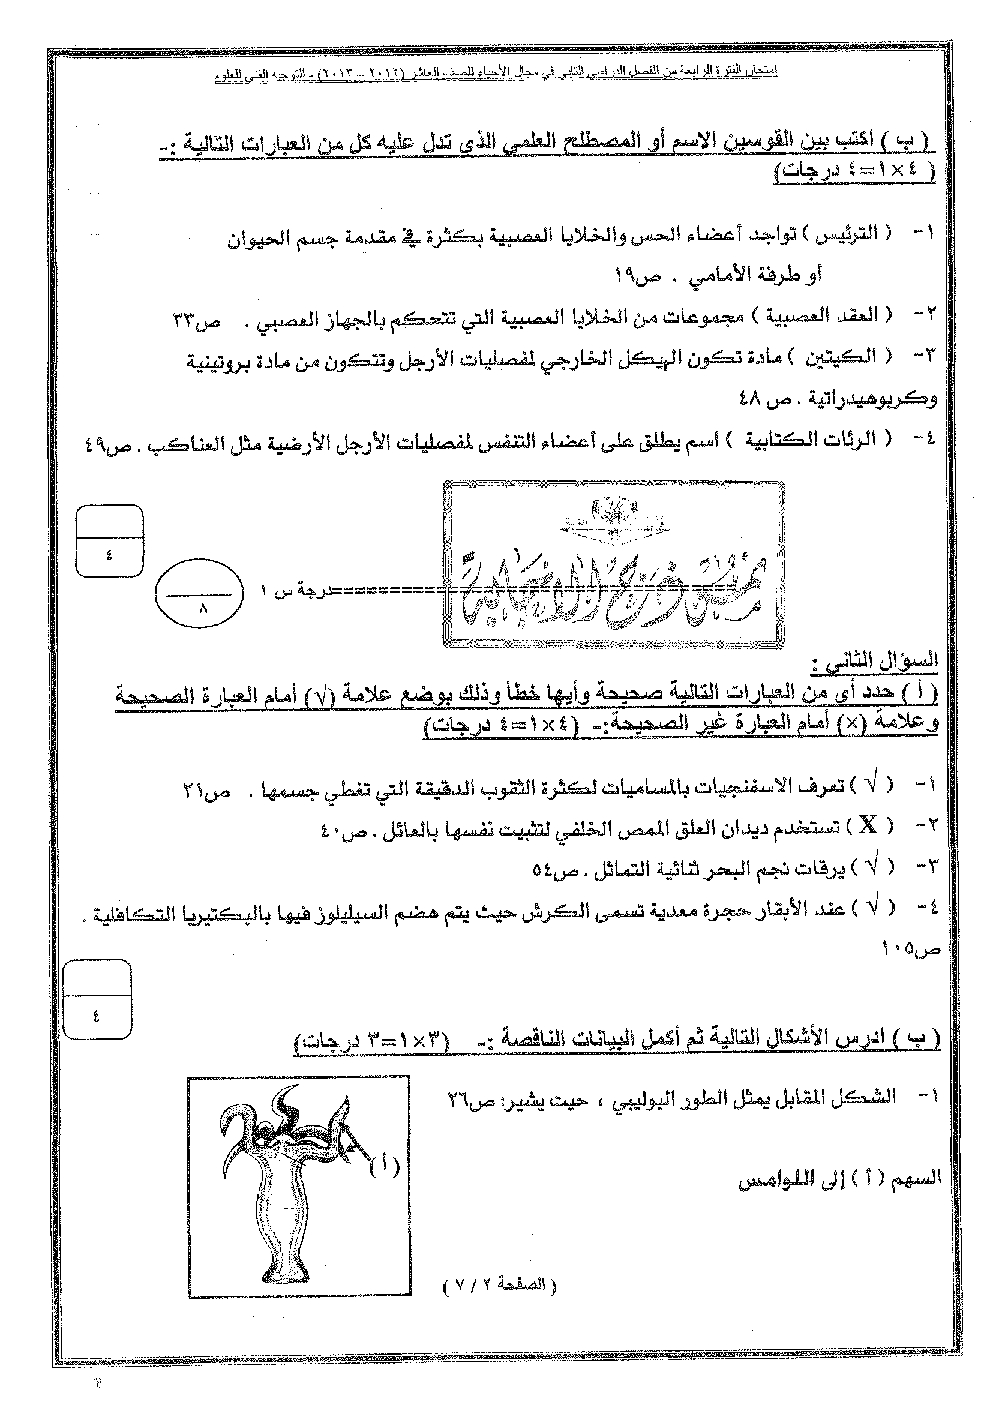 امتحان الفترة الرابعة من الفصل الدراسي الثاني في مجال الأحياء للصف العاشر (٢٠١٢ – ٢٠١٣) - التوجيه الفني للعلوم
( ب ) اكتب بين القوسين الاسم أو المصطلح العلمي الذي تدل عليه كل من العبارات التالية :-
( ٤×١=٤ درجات)
١- ( الترئيس ) تواجد أعضاء الحس والخلايا العصبية بكثرة في مقدمة جسم الحيوان
أو طرفة الأمامي . ص١٩
٢- ( العقد العصبية ) مجموعات من الخلايا العصبية التي تتحكم بالجهاز العصبي . ص٣٣
٣- ( الكيتين ) مادة تكون الهيكل الخارجي لمفصليات الأرجل وتتكون من مادة بروتينية
وكربوهيدراتية . ص ٤٨
٤- ( الرئات الكتابية ) اسم يطلق على أعضاء التنفس لمفصليات الأرجل الأرضية مثل العناكب . ص٤٩
٤
درجة س ١
٨
نموذج الإجابة
السؤال الثاني :
( أ ) حدد أي من العبارات التالية صحيحة وأيها خطأ وذلك بوضع علامة (√) أمام العبارة الصحيحة
وعلامة (×) أمام العبارة غير الصحيحة:- (٤×١=٤ درجات)
١- ( √ ) تعرف الاسفنجيات بالمساميات لكثرة الثقوب الدقيقة التي تغطي جسمها . ص٢١
٢- ( X ) تستخدم ديدان العلق الممص الخلفي لتثبيت نفسها بالعائل . ص٤٠
٣- ( √ ) يرقات نجم البحر ثنائية التماثل . ص٥٤
٤- ( √ ) عند الأبقار حجرة معدية تسمى الكرش حيث يتم هضم السيليلوز فيها بالبكتيريا التكافلية .
ص١٠٥
٤
( ب ) ادرس الأشكال التالية ثم أكمل البيانات الناقصة :- (٣×١=٣ درجات)
١- الشكل المقابل يمثل الطور البوليبي ، حيث يشير: ص٢٦
(أ)
السهم ( أ ) إلى اللوامس
( الصفحة ٢ / ٧ )